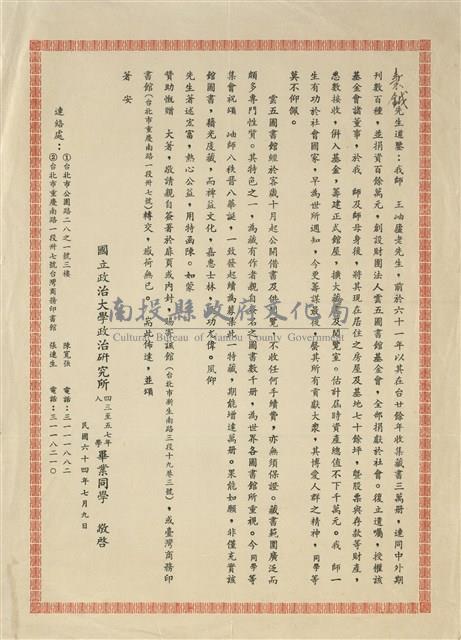 先生道鑒：我師　王岫廬老先生，前於六十一年以其在台廿餘年收集藏書三萬册，連同中外期
刊數百種，並捐資百餘萬元，創設財團法人雲五圖書館基金會，全部捐獻於社會。復立遺囑，授權該
基金會諸董事，於我　師及師母身後，將其現在居住之房屋及基地七十餘坪，曁股票與存款等財產，
悉數接收，併入基金，籌建正式館屋，擴大藏書及閱覽室。估計屆時資產總值不下千萬元。我　師一
生有功於社會國家，早為世所週知，今更籌謀最後，罄其所有貢獻大衆，其博愛人群之精神，同學等
莫不仰佩。
雲五圖書館經於客歲十月起公開借書及供閱覽，不收任何手續費，亦無須保證。藏書範圍廣泛而
頗多專門性質。其特色之一，為藏有作者親自簽名之圖書數千册，為世界各圖書館所重視。今同學等
集會祝頌　岫師八秩晉八華誕，一致發起續為募集此一特藏，期能增達萬册。果能如願，非僅充實該
館圖書，藉光度藏，而裨益文化，嘉惠士林，功尤偉。夙仰
先生著述宏富，熱心公益，用特函陳。如蒙
贊助慨贈　大著，敬請親自簽署於扉頁或内封，賜寄該館（台北市新生南路三段十九巷三號），或臺灣商務印
書館（台北市重慶南路一段卅七號）轉交，感荷無已。專此佈達，並頌
著安
國立政治大學政治研究所　四三至五七年入學　畢業同學　敬啓
民國六十四年七月九日
連絡處：①台北市公園路二八之一號三樓　陳寬强　電話：三一一八八二
②台北市重慶南路一段卅七號台灣商務印書館　張連生　電話：三一一八二一〇
南投縣政府文化局
Cultural Bureau of Nantou County Government